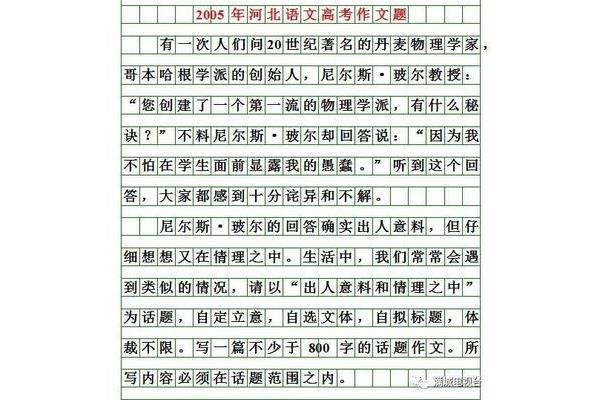 2005年河北语文高考作文题
有一次人们问20世纪著名的丹麦物理学家，
哥本哈根学派的创始人，尼尔斯·玻尔教授：
“您创建了一个第一流的物理学派，有什么秘
诀？”不料尼尔斯·玻尔却回答说：“因为我
不怕在学生面前显露我的愚蠢。”听到这个回
答，大家都感到十分诧异和不解。
尼尔斯·玻尔的回答确实出人意料，但仔
细想想又在情理之中。生活中，我们常常会遇
到类似的情况，请以“出人意料和情理之中”
为话题，自定立意，自选文体，自拟标题，体
裁不限。写一篇不少于800字的话题作文。所
写内容必须在话题范围之内。
蒲城电视台